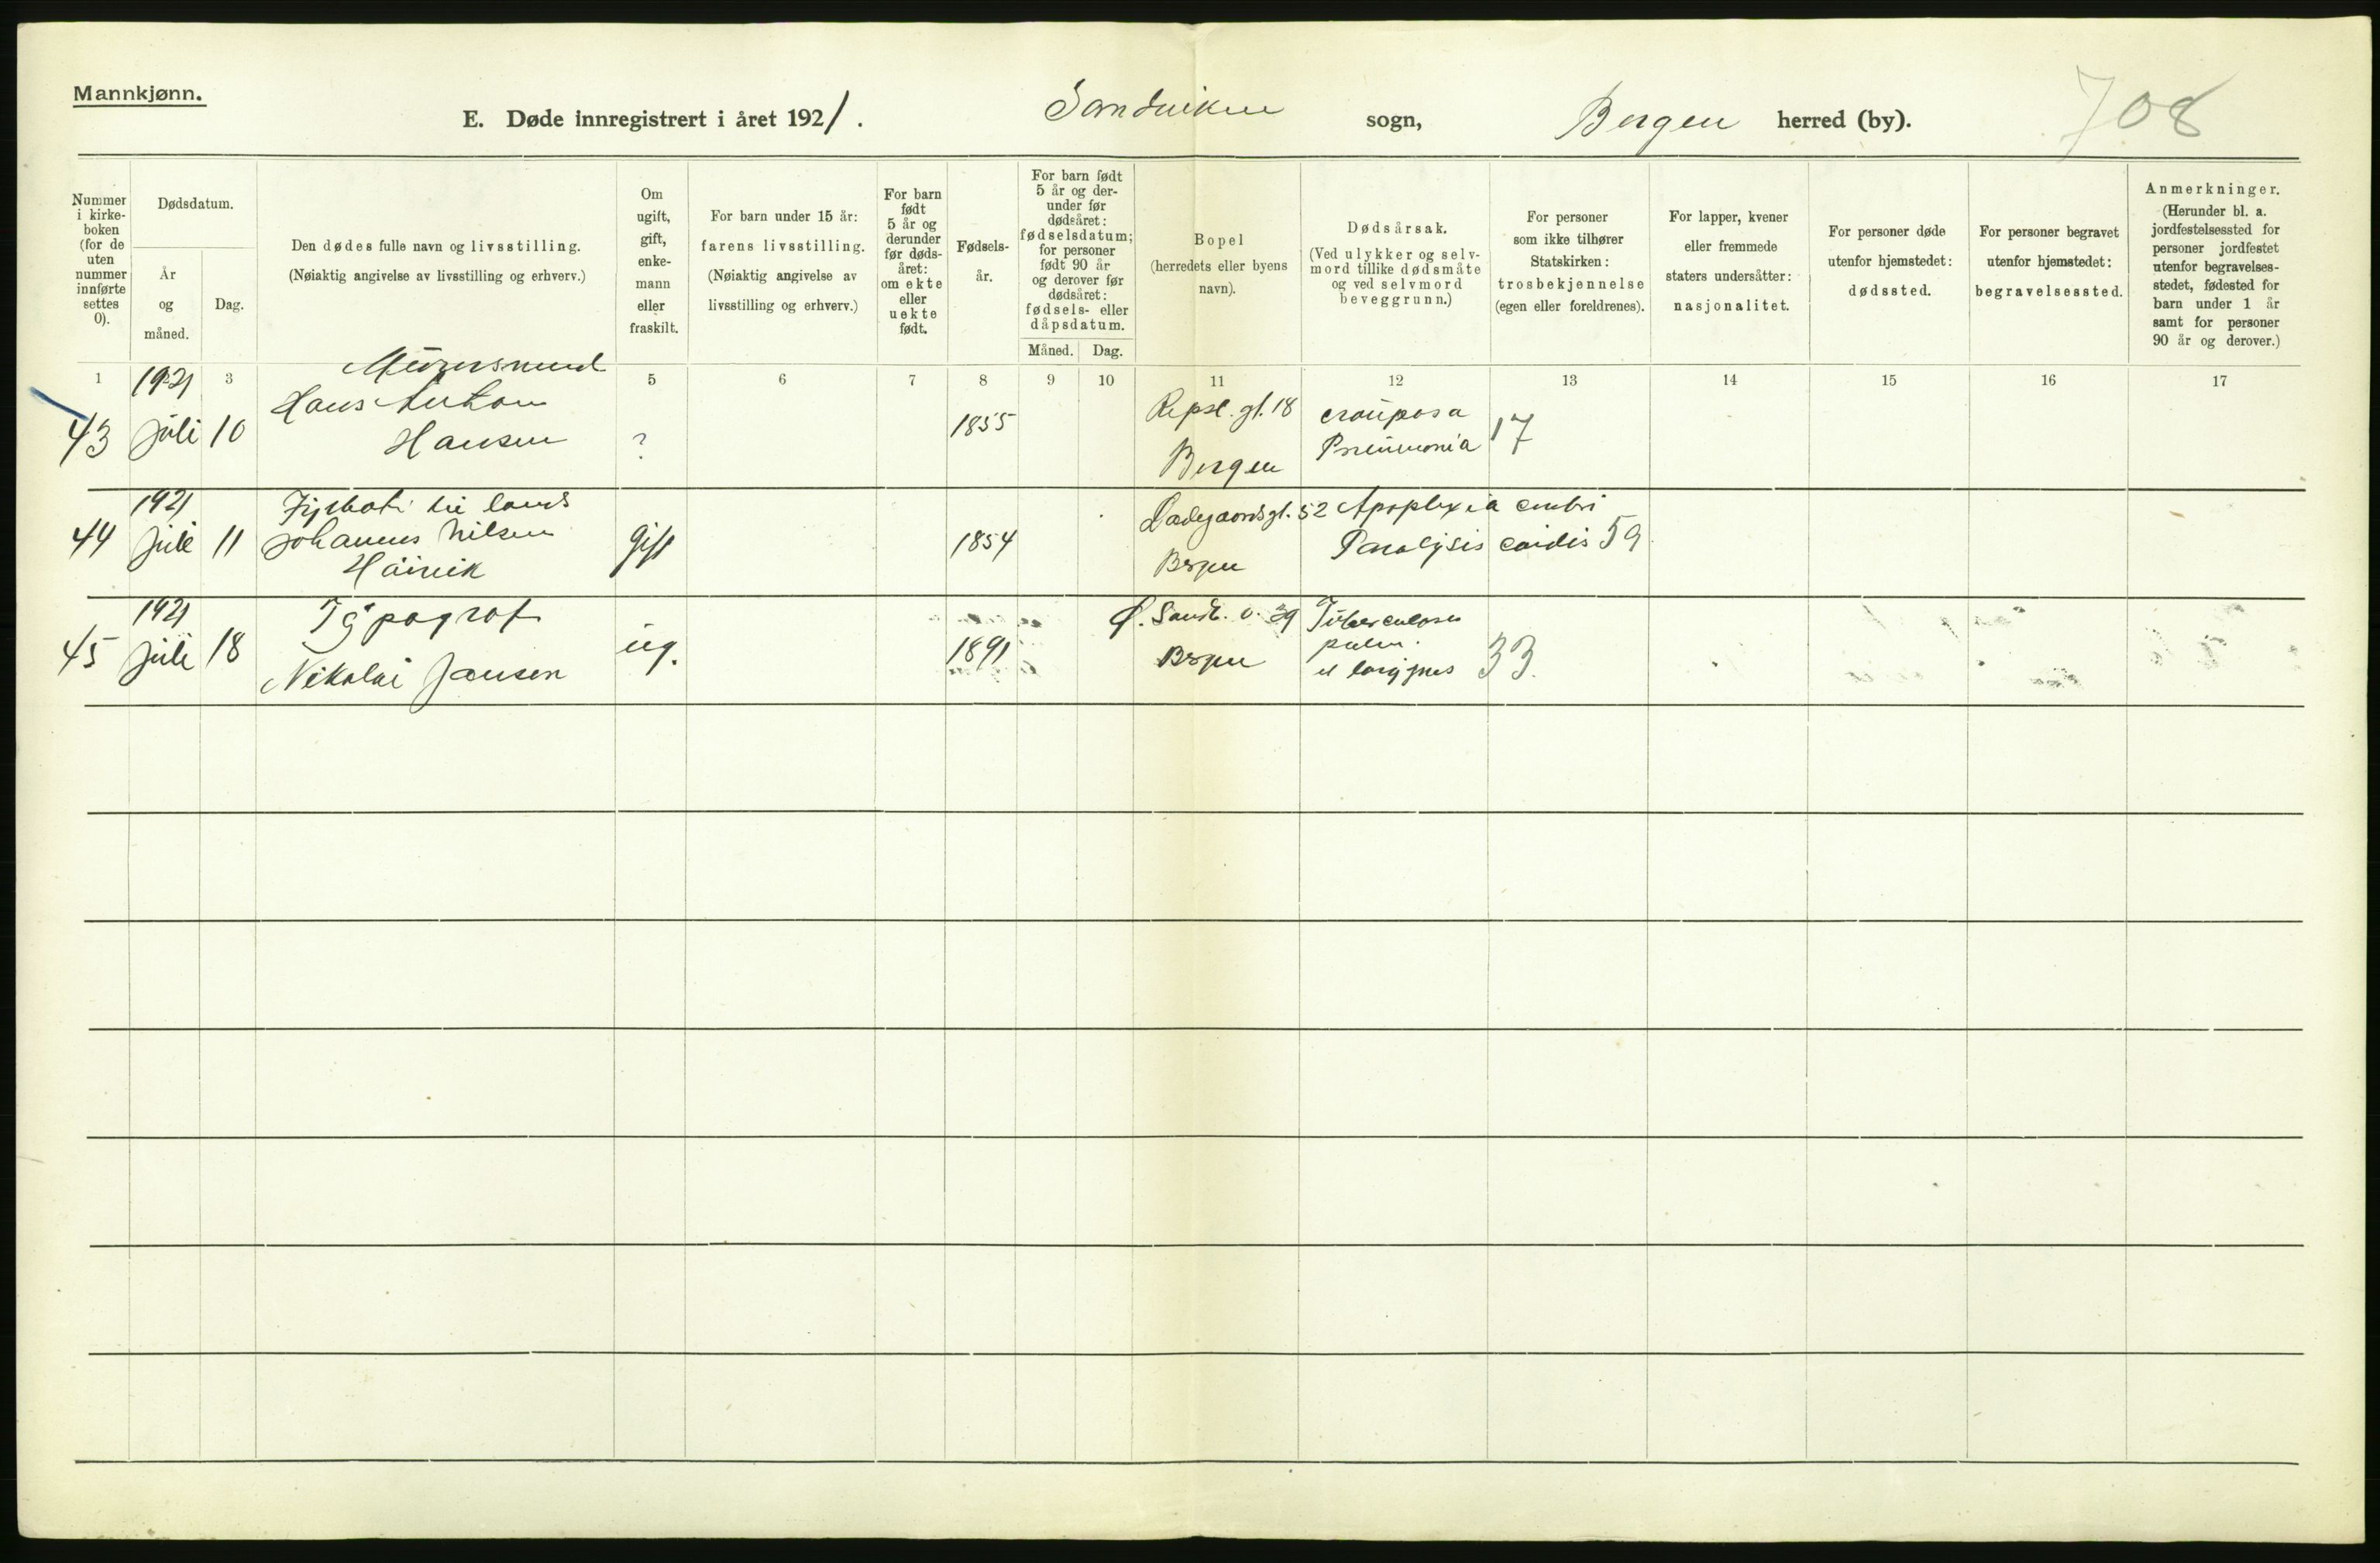 Mannkjønn.
E. Døde innregistrert i året 1921. Sandviken sogn, Bergen herred (by). 708
Nummer i kirkeboken (for de uten nummer innførte settes 0).
Dødsdatum.
År og måned.
Dag.
Den dødes fulle navn og livsstilling.
(Nøiaktig angivelse av livsstilling og erhverv.)
Om ugift, gift, enkemann eller fraskilt.
For barn under 15 år:
farens livsstilling.
(Nøiaktig angivelse av livsstilling og erhverv.)
For barn født 5 år og derunder før dødsåret: om ekte eller uekte født.
Fødselsår.
For barn født 5 år og derunder før dødsåret: fødselsdatum; for personer født 90 år og derover før dødsåret: fødsels- eller dåpsdatum.
Måned. Dag.
Bopel
(herredets eller byens navn).
Dødsårsak.
(Ved ulykker og selvmord tillike dødsmåte og ved selvmord beveggrunn.)
For personer som ikke tilhører Statskirken:
trosbekjennelse
(egen eller foreldrenes).
For lapper, kvener eller fremmede staters undersåtter:
nasjonalitet.
For personer døde utenfor hjemstedet:
dødssted.
For personer begravet utenfor hjemstedet:
begravelsessted.
Anmerkninger.
(Herunder bl. a. jordfestelsessted for personer jordfestet utenfor begravelsesstedet, fødested for barn under 1 år samt for personer 90 år og derover.)
1 3 5 6 7 8 9 10 11 12 13 14 15 16 17
1921 Murersvend
43 juli 10 Hans Anton Hansen ? 1855 Repsl. gt. 18 Bergen crouposa Pneumonia 17
1921
44 juli 11 Johannes Nilsen gift 1854 Ladegaardsgt. 52 Bergen Apoplexia cerebri Paralysis cordis 59
1921 Typograf
45 juli 18 Nikolai Jansen ug. 1891 Ø. Sandv. v. 39 Bergen Tuberculosis pulm. et laryngis 33